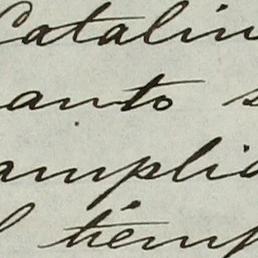 Catalin
anto s
amplia
l témp